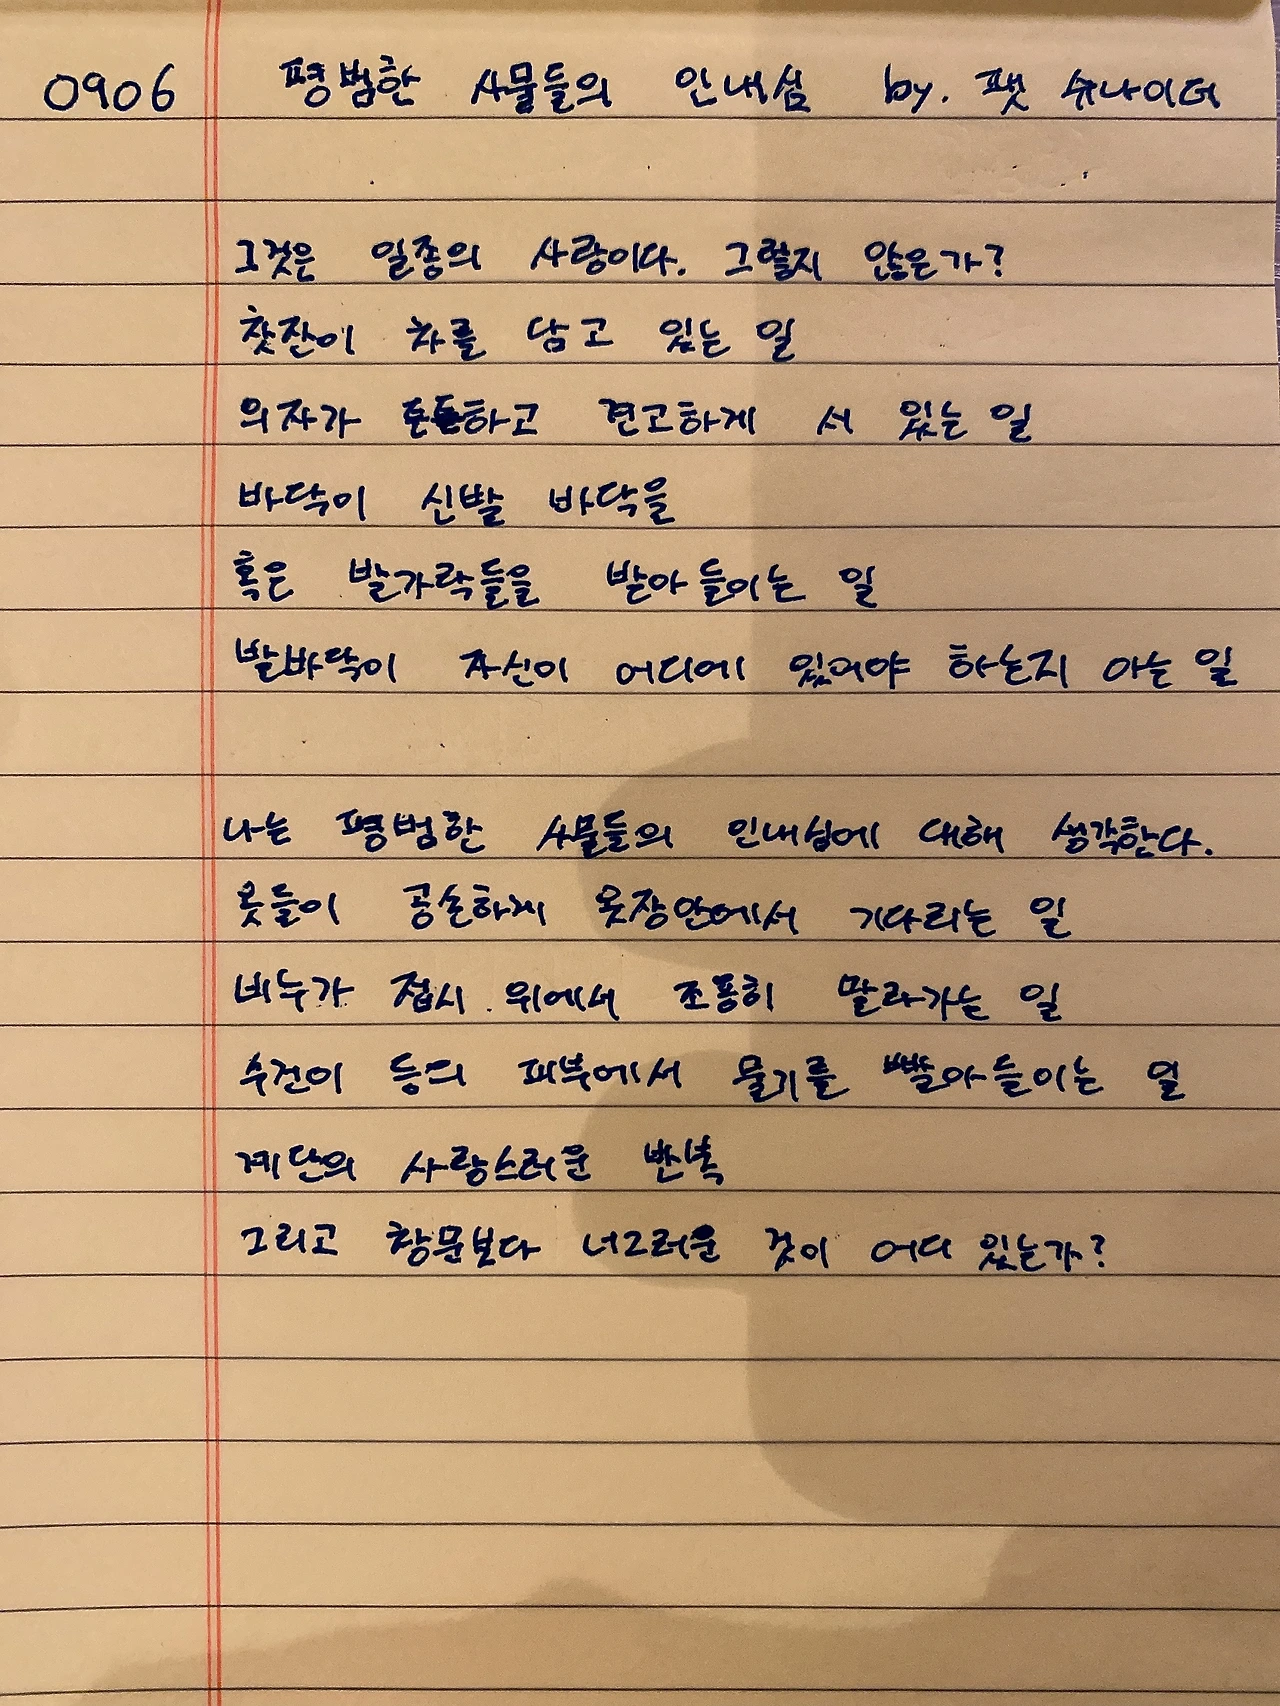 0906 평범한 사물들의 인내심 by. 팻 슈나이더
그것은 일종의 사랑이다. 그렇지 않은가?
찻잔이 차를 담고 있는 일
의자가 튼튼하고 견고하게 서 있는 일
바닥이 신발 바닥을
혹은 발가락들을 받아들이는 일
발바닥이 자신이 어디에 있어야 하는지 아는 일
나는 평범한 사물들의 인내심에 대해 생각한다.
옷들이 공손하게 옷장안에서 기다리는 일
비누가 접시 위에서 조용히 말라가는 일
수건이 등의 피부에서 물기를 빨아들이는 일
계단의 사랑스러운 반복
그리고 창문보다 너그러운 것이 어디 있는가?